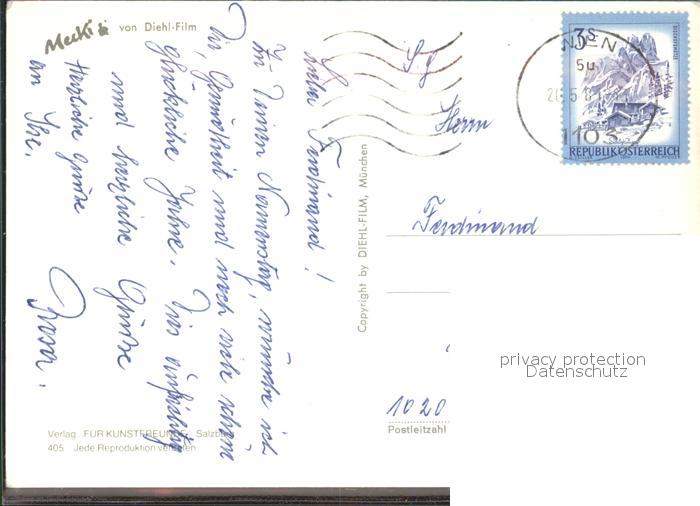 Mecki von Diehl-Film
Lieber Ferdinand!
Zu Deinem Namenstag, wünsche ich
Dir, Gesundheit und noch viele schöne
glückliche Jahre. Dies aufrichtig
und herzliche Grüsse
Herzliche Grüsse
an Ihr.
Rosa.
Verlag „FÜR KUNSTFREUNDE" Salzburg
405 Jede Reproduktion verboten
Copyright by DIEHL-FILM, München
S. g.
Herrn
Ferdinand
1020
Postleitzahl
WIEN
5u
1103
3S
BISCHOFSMÜTZE
REPUBLIK ÖSTERREICH
privacy protection
Datenschutz